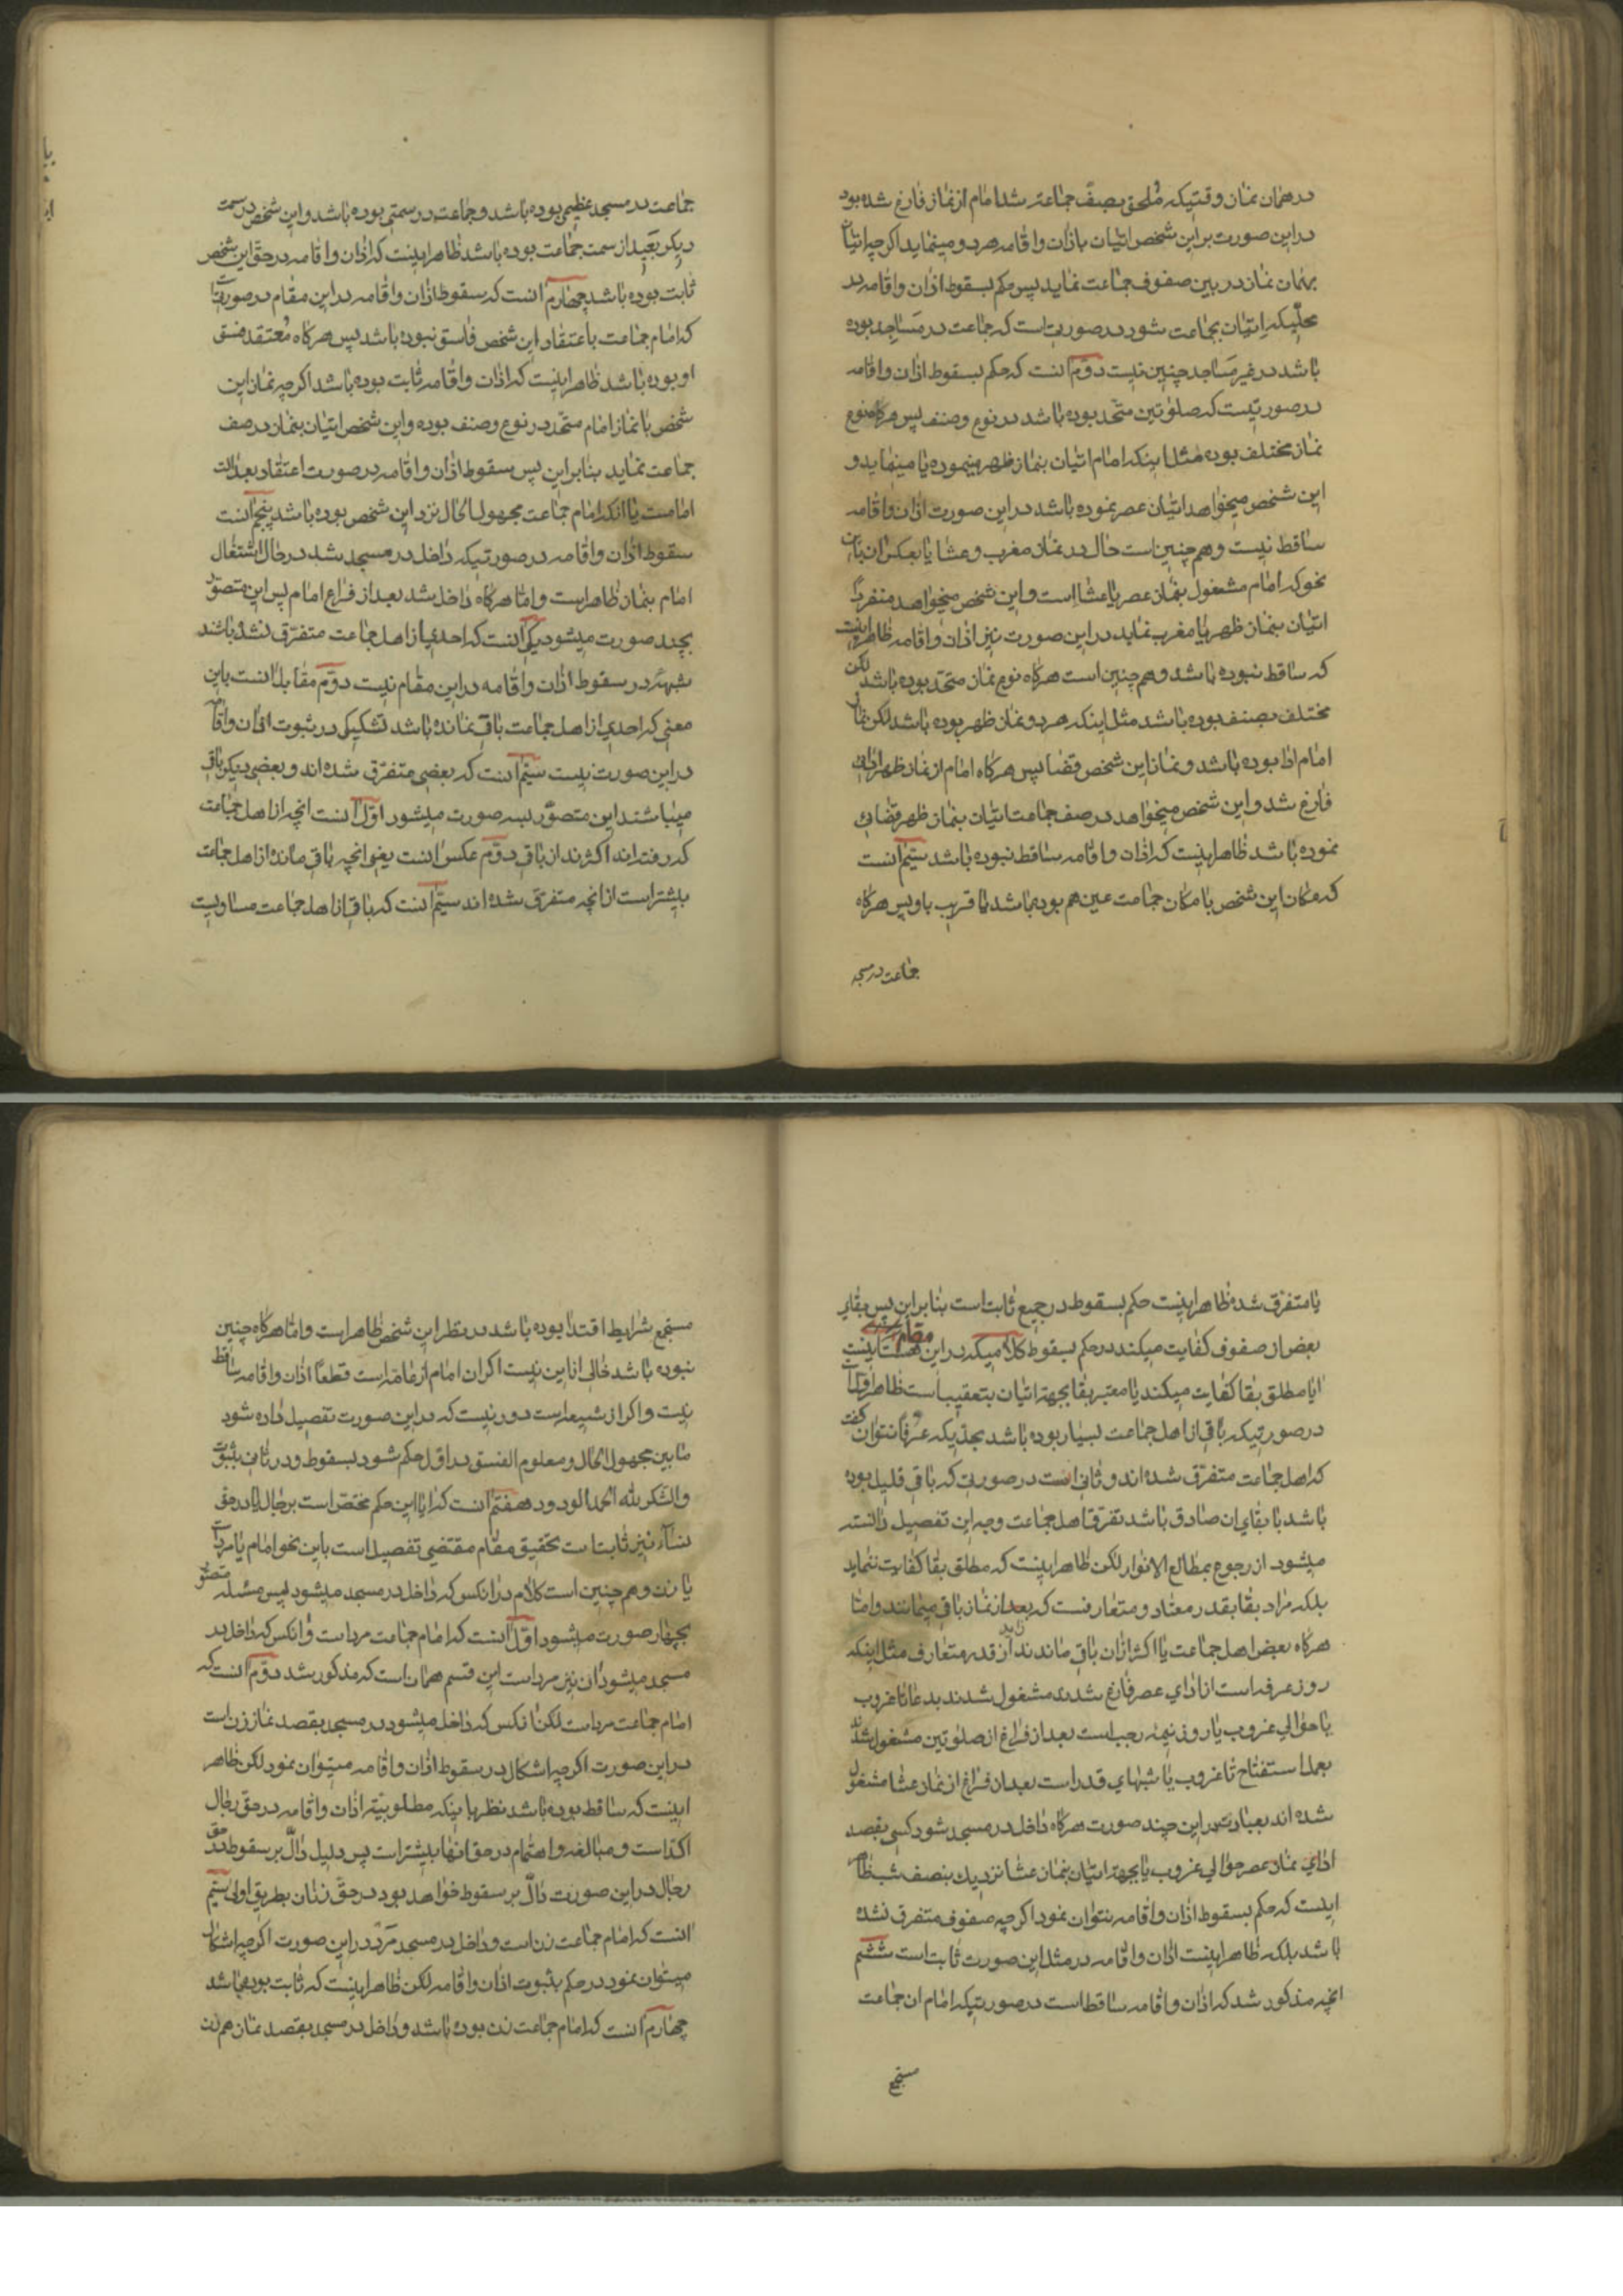 در همان نماز وقتیکه مُلحق بصفّ جماعت شد امام از نماز فارغ شده بود
در این صورت بر این شخص اتیان باذان و اقامه هر دو مینماید اکر چه اتیان
بهمان نماز در بین صفوف جماعت نماید پس حکم بسقوط اذان و اقامه در
محلّیکه اتیان بجماعت شود در صورتیست که جماعت در مساجد بوده
باشد در غیر مساجد چنین نیست دوّم آنست که حکم بسقوط اذان و اقامه
در صورتیست که صلوتین متّحد بوده باشد در نوع و صنف پس هرکاه نوع
نماز مختلف بوده مثل اینکه امام اتیان بنماز ظهر مینموده یا مینماید و
این شخص میخواهد اتیان عصر نموده باشد در این صورت اذان و اقامه
ساقط نیست و هم چنین است حال در نماز مغرب و عشا یا بعکس ان باین
نحو که امام مشغول بنماز عصر یا عشا است و این شخص میخواهد منفردًا
اتیان بنماز ظهر یا مغرب نماید در این صورت نیز اذان و اقامه ظاهر اینست
که ساقط نبوده باشد و هم چنین است هرکاه نوع نماز متحد بوده باشد لکن
مختلف بصنف بوده باشد مثل اینکه هر دو نماز ظهر بوده باشد لکن نماز
امام ادا بوده باشد و نماز این شخص قضا پس هرکاه امام از نماز ظهر ادائی
فارغ شد و این شخص میخواهد در صف جماعت اتیان بنماز ظهر قضائی
نموده باشد ظاهر اینست که اذان و اقامه ساقط نبوده باشد سیّم آنست
که مکان این شخص با مکان جماعت عین هم بوده باشد یا قریب باو پس هرکاه
جماعت در مسجد
جماعت در مسجد عظیمی بوده باشد و جماعت در سمتی بوده باشد و این شخص در سمت
دیکر بَعید از سمت جماعت بوده باشد ظاهر اینست که اذان و اقامه در حق این شخص
ثابت بوده باشد چهارم آنست که سقوط اذان و اقامه در این مقام در صورتیست
که امام جماعت باعتقاد این شخص فاسق نبوده باشد پس هرکاه مُعتقد فسق
او بوده باشد ظاهر اینست که اذان و اقامه ثابت بوده باشد اکر چه نماز این
شخص با نماز امام متحد در نوع و صنف بوده و این شخص اتیان بنماز در صف
جماعت نماید بنابراین پس سقوط اذان و اقامه در صورت اعتقاد بعدالت
امامست یا آنکه امام جماعت مجهول الحال نزد این شخص بوده باشد پنجم آنست
سقوط اذان و اقامه در صورتیکه داخل در مسجد شد در حال اشتغال
امام بنماز ظاهر است و امّا هرکاه داخل شد بعد از فراغ امام پس این متصوّر
بچند صورت میشود یکی آنست که احدی از اهل جماعت متفرّق نشده باشند
شبهه در سقوط اذان و اقامه در این مقام نیست دوّم مقابل آنست باین
معنی که احدی از اهل جماعت باقی نمانده باشد تشکیکی در ثبوت اذان و اقامه
در این صورت نیست سیّم آنست که بعضی متفرّق شده اند و بعضی دیکر باقی
میباشند این متصوّر بسه صورت میشود اوّل آنست انچه از اهل جماعت
که رفته اند اکثرند از باقی دوّم عکس آنست یعنی انچه باقی مانده از اهل جماعت
بیشتر است از انچه متفرّق شده اند سیّم آنست که باقی از اهل جماعت مساویست
یا متفرّق شده ظاهر اینست حکم بسقوط در جمیع ثابت است بنابراین پس بقای
بعض از صفوف کفایت میکند در حکم بسقوط کلامیکه در این مقام هست اینست
ایا مطلق بقا کفایت میکند یا معتبر بقا بجهة اتیان بتعقیب است ظاهر اول است
در صورتیکه باقی از اهل جماعت بسیار بوده باشد بحدّیکه عرفًا نتوان کفت
که اهل جماعت متفرّق شده اند و ثانی است در صورتی که باقی قلیل بوده
باشد با بقای ان صادق باشد تفرّق اهل جماعت وجه این تفصیل دانسته
میشود از رجوع بمطالع الانوار لکن ظاهر اینست که مطلق بقا کفایت ننماید
بلکه مراد بقا بقدر معتاد و متعارفست که بعد از نماز باقی میمانند و امّا
هرکاه بعض اهل جماعت یا اکثر ازان باقی ماندند زاید از قدر متعارف مثل اینکه
روز عرفه است از ادای عصر فارغ شدند مشغول شدند بدعا تا غروب
یا حوالی غروب یا روز نیمه رجب است بعد از فراغ از صلوتین مشغول شدند
بعمل استفتاح تا غروب یا شبهای قدر است بعد از فراغ از نماز عشا مشغول
شده اند بعبادت در این چند صورت هرکاه داخل در مسجد شود کسی بقصد
ادای نماز عصر حوالی غروب یا بجهة اتیان بنماز عشا نزدیک بنصف شب ظاهر
اینست که حکم بسقوط اذان و اقامه نتوان نمود اکر چه صفوف متفرق نشده
باشد بلکه ظاهر اینست اذان و اقامه در مثل این صورت ثابت است ششم
انچه مذکور شد که اذان و اقامه ساقط است در صورتیکه امام ان جماعت
مستجمع
مستجمع شرایط اقتدا بوده باشد در نظر این شخص ظاهر است و امّا هرکاه چنین
نبوده باشد خالی از این نیست اکر ان امام از عامّه است قطعًا اذان و اقامه ساقط
نیست و اکر از شیعه است دور نیست که در این صورت تفصیل داده شود
ما بین مجهول الحال و معلوم الفسق در اوّل حکم شود بسقوط و در ثانی بثبوت
والشکر لله الحمد الودود هفتم آنست که ایا این حکم مختصّ است برجال یا در حق
نسآء نیز ثابت است تحقیق مقام مقتضی تفصیل است باین نحو امام یا مرد است
یا زن و هم چنین است کلام در انکس که داخل در مسجد میشود پس مسئله متصوّر
بچهار صورت میشود اوّل آنست که امام جماعت مرد است و انکس که داخل در
مسجد میشود ان نیز مرد است این قسم همانست که مذکور شد دوّم آنست که
امام جماعت مرد است لکن انکس که داخل میشود در مسجد بقصد نماز زن است
در این صورت اکر چه اشکال در سقوط اذان و اقامه میتوان نمود لکن ظاهر
اینست که ساقط بوده باشد نظر باینکه مطلوبیّة اذان و اقامه در حق رجال
اکد است و مبالغه و اهتمام در حق انها بیشتر است پس دلیل دالّ بر سقوط در حق
رجال در این صورت دالّ بر سقوط خواهد بود در حقّ زنان بطریق اولی سیّم
آنست که امام جماعت زن است و داخل در مسجد مرد در این صورت اکر چه اشکال
میتوان نمود در حکم بثبوت اذان و اقامه لکن ظاهر اینست که ثابت بوده باشد
چهارم آنست که امام جماعت زن بوده باشد و داخل در مسجد بقصد نماز هم زن